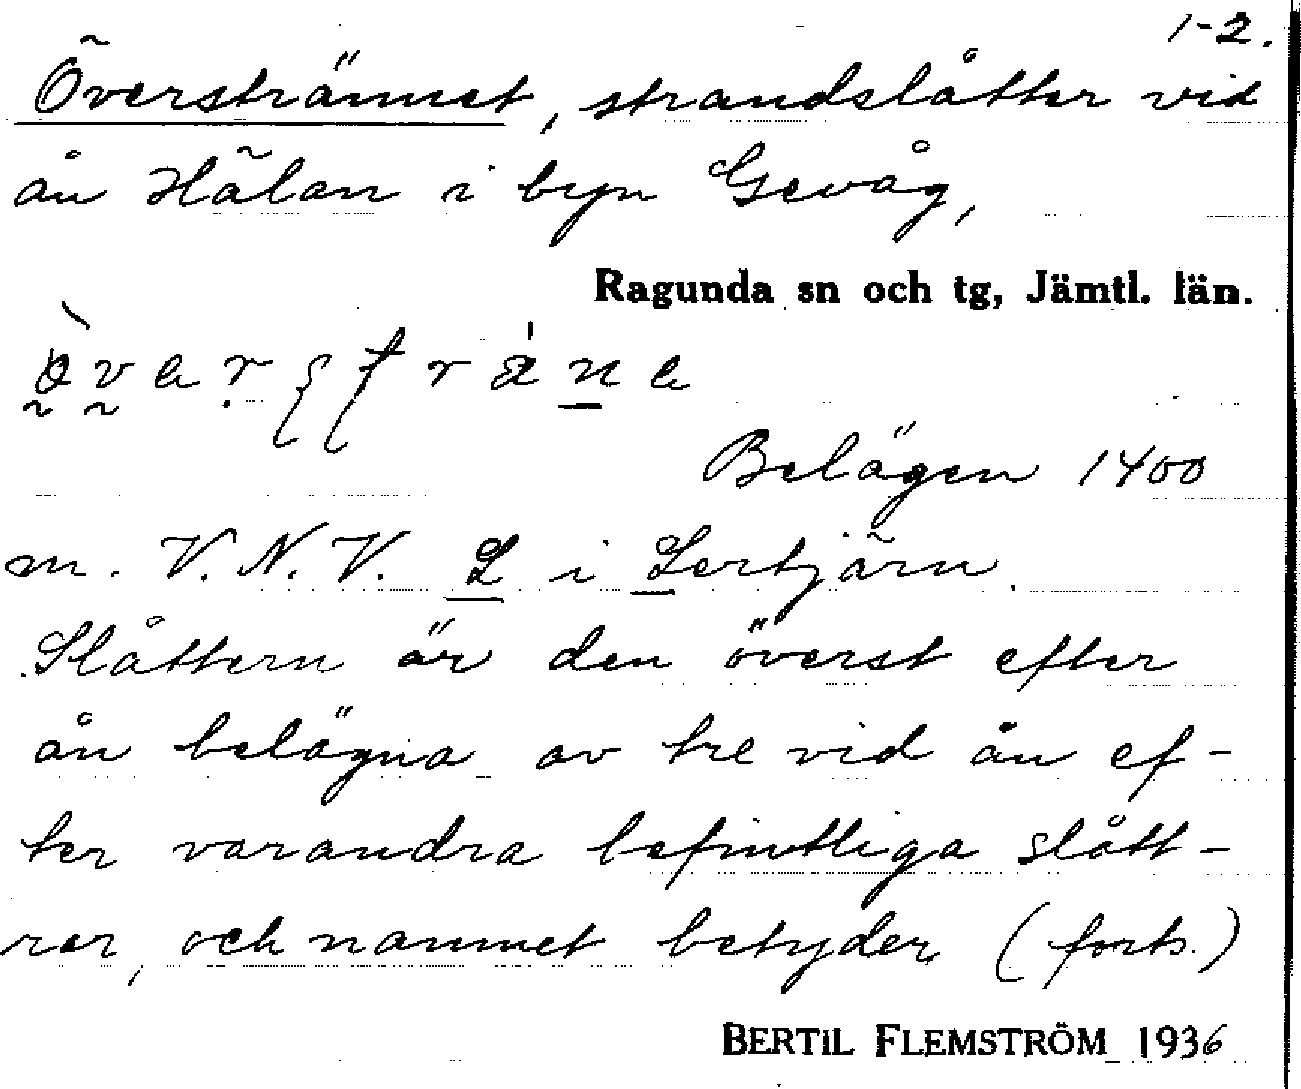 1-2.
Överstrännet, strandslåtter vid
ån Hälan i byn Gevåg,
Ragunda sn och tg, Jämtl. län.
Belägen 1400
m. V.N.V. L i Lertjärn.
Slåttern är den överst efter
ån belägna av tre vid ån ef-
ter varandra befintliga slått-
rar, och namnet betyder (forts.)
BERTIL FLEMSTRÖM 1936